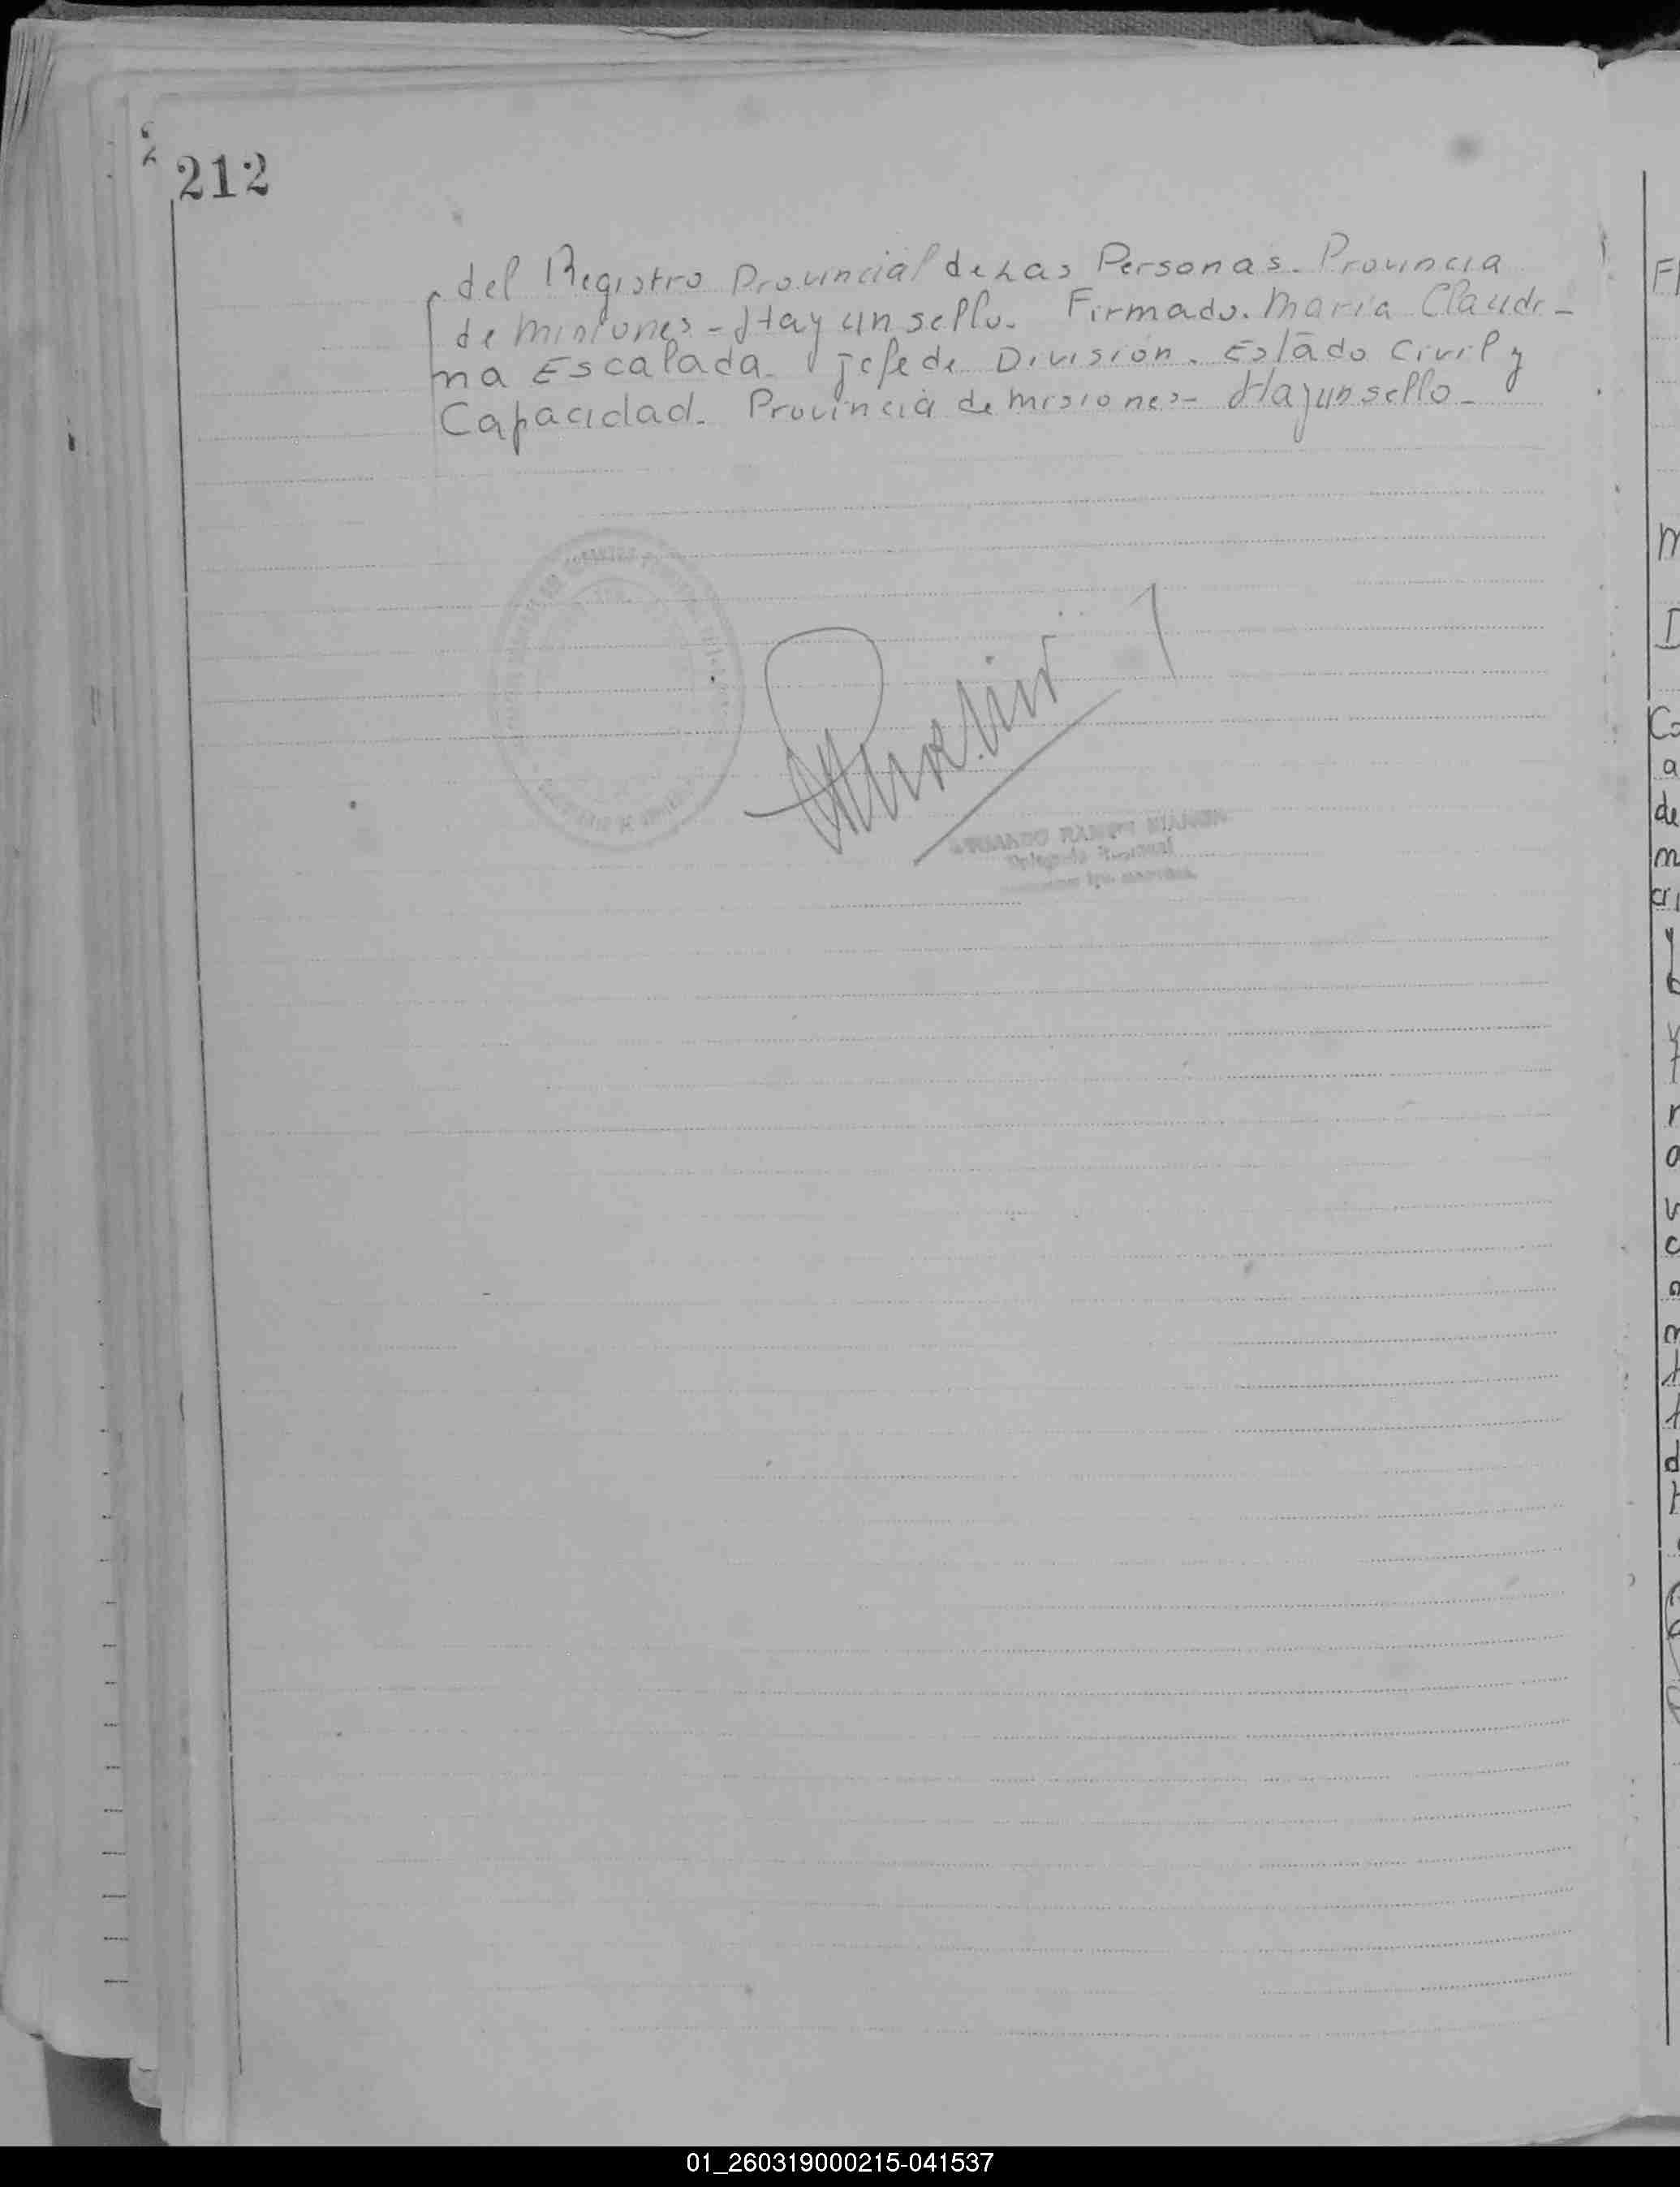 212
del Registro Provincial de Las Personas. Provincia
de Misiones - Hay un sello. Firmado. Maria Claudi-
na Escalada. Jefe de División. Estado Civil y
Capacidad. Provincia de Misiones - Hay un sello -
RAMON
Delegado
01_260319000215-041537